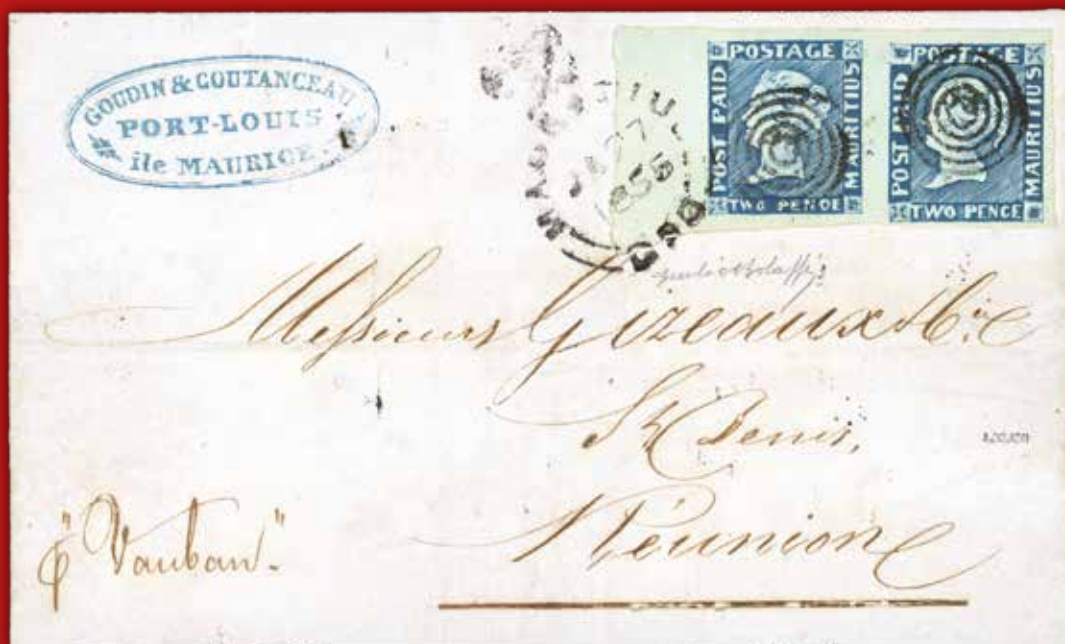 GOUDIN & COUTANCEAU
PORT-LOUIS
ile MAURICE
POSTAGE
POST PAID
MAURITIUS
TWO PENOE
POSTAGE
POST PAID
MAURITIUS
TWO PENCE
Messieurs Gizeaux & Cie
St Denis,
Réunion
"Vauban"